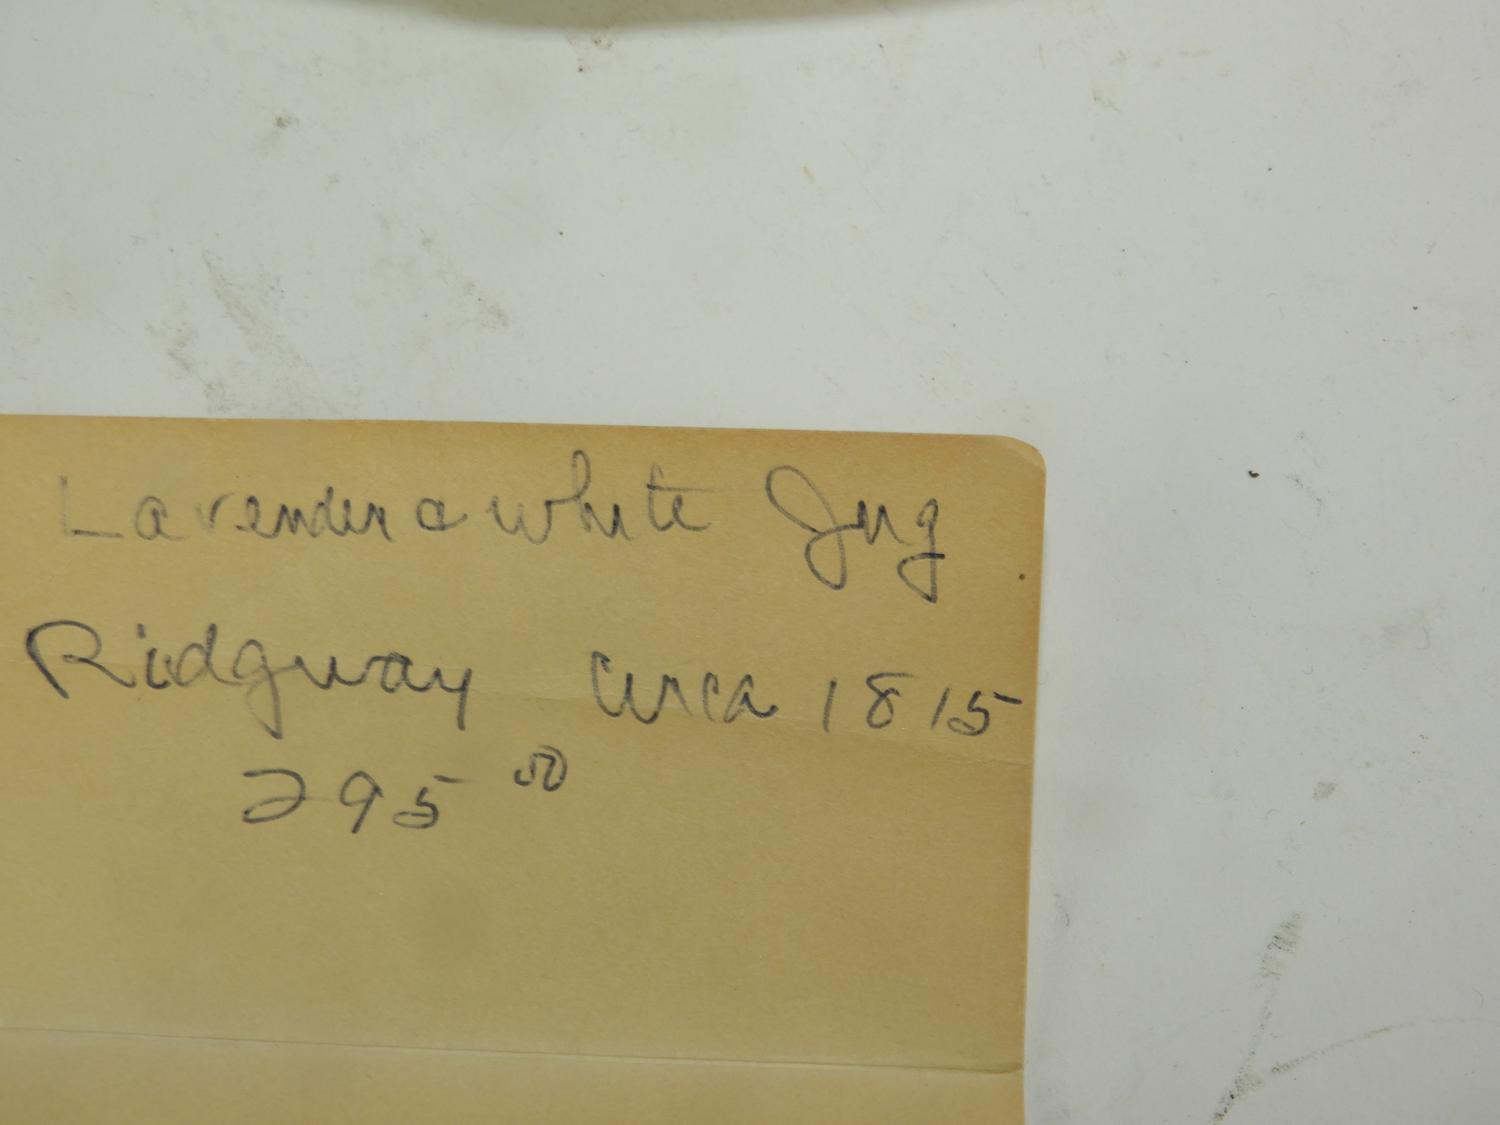 Lavender & white Jug
Ridgway circa 1815
295 50